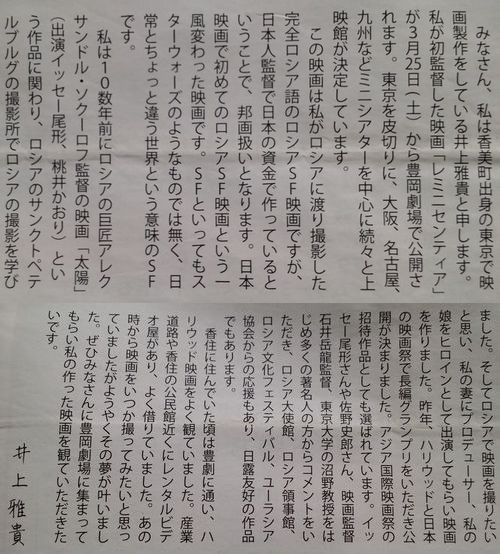 みなさん、私は香美町出身の東京で映
画製作をしている井上雅貴と申します。
私が初監督した映画「レミニセンティア」
が３月25日（土）から豊岡劇場で公開さ
れます。東京を皮切りに、大阪、名古屋、
九州などミニシアターを中心に続々と上
映館が決定しています。
この映画は私がロシアに渡り撮影した
完全ロシア語のロシアＳＦ映画ですが、
日本人監督で日本の資金で作っていると
いうことで、邦画扱いとなります。日本
映画で初めてのロシアＳＦ映画という一
風変わった映画です。ＳＦといってもス
ターウォーズのようなものでは無く、日
常とちょっと違う世界という意味のＳＦ
です。
私は１０数年前にロシアの巨匠アレク
サンドル・ソクーロフ監督の映画「太陽」
（出演イッセー尾形、桃井かおり）とい
う作品に関わり、ロシアのサンクトペテ
ルブルグの撮影所でロシアの撮影を学び
ました。そしてロシアで映画を撮りたい
と思い、私の妻にプロデューサー、私の
娘をヒロインとして出演してもらい映画
を作りました。昨年、ハリウッドと日本
の映画祭で長編グランプリをいただき公
開が決まりました。アジア国際映画祭の
招待作品としても選ばれています。イッ
セー尾形さんや佐野史郎さん、映画監督
石井岳龍監督、東京大学の沼野教授をは
じめ多くの著名人の方からコメントをい
ただき、ロシア大使館、ロシア領事館、
ロシア文化フェスティバル、ユーラシア
協会からの応援もあり、日露友好の作品
でもあります。
香住に住んでいた頃は豊劇に通い、ハ
リウッド映画をよく観ていました。産業
道路や香住の公民館近くにレンタルビデ
オ屋があり、よく借りていました。あの
時から映画をいつか撮ってみたいと思っ
ていましたがようやくその夢が叶いまし
た。ぜひみなさんに豊岡劇場に集まって
もらい私の作った映画を観ていただきた
いです。
井上雅貴